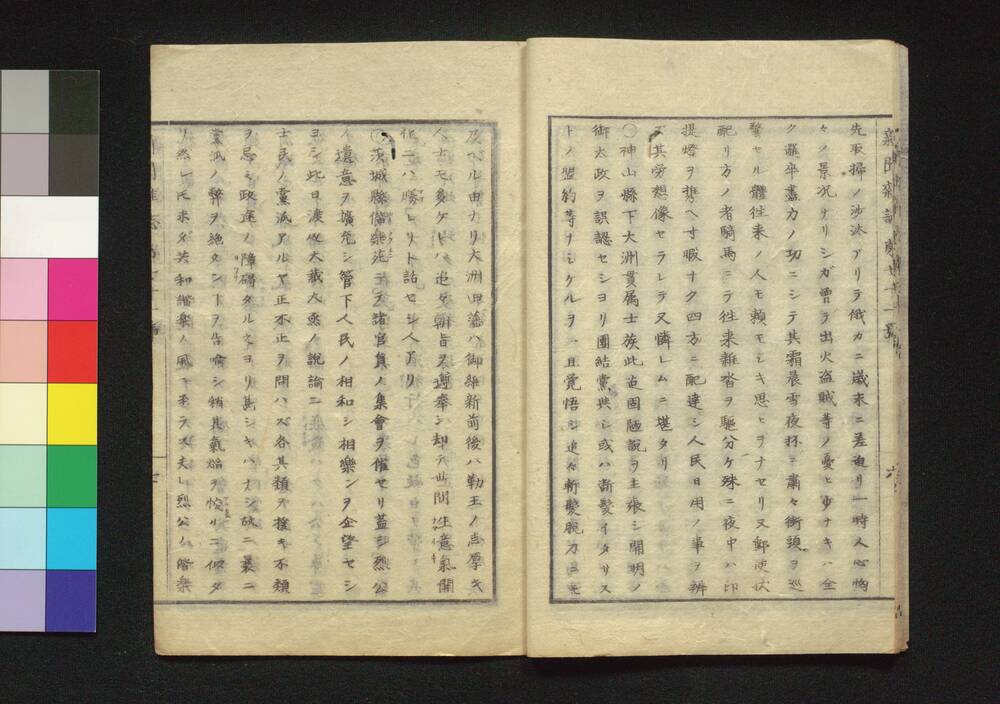 新聞雑誌 第七十一號 六
先取掃ノ沙汰アリテ俄カニ歳末ニ差迫リ一時人心恟
々ノ景况ナリシガ曽テ出火盗賊等ノ憂ヒ少ナキハ全
ク邏卒盡力ノ功ニシテ其霜晨雪夜抔ニ粛々街頭ヲ巡
警セル體往来ノ人モ頼モシキ思ヒヲナセリ又郵便状
配リ方ノ者騎馬ニテ往来雑沓ヲ驅分ケ殊ニ夜中ハ印
提燈ヲ携ヘ寸暇ナク四方ニ配達シ人民日用ノ事ヲ辨
ズ其労想像セラレテ又憐レムニ堪タリ
○神山縣下大洲貫属士族此迄固陋説ヲ主張シ開明ノ
御太政ヲ誤認セシヨリ團結黨與シ或ハ断髪イタサス
トノ盟約等ナシケルヲ一旦覚悟シ追々斬髪脱刀
及ベル由ナリ大洲旧藩ハ御維新前後ハ勤王ノ志厚キ
人士モ多ケレハ追々朝旨ヲ遵奉シ却テ世間生意氣開
化ニハ勝レリト話セシ人アリ
○茨城縣偕楽
ノ遺意ヲ擴充シ管下人民ノ相和シ相樂ンヲ企望セシ
ヨシ此日渡邊大蔵大丞ノ説論ニ
士民ノ黨派アルヤ正不正ヲ問ハズ各其類ヲ援キ不類
ヲ忌ミ政途ノ障碍タル
黨派ノ弊ヲ絶タン
リ然レ𪜈未ダ共和諧樂ノ風ニ至ラズ夫レ烈公ノ偕樂